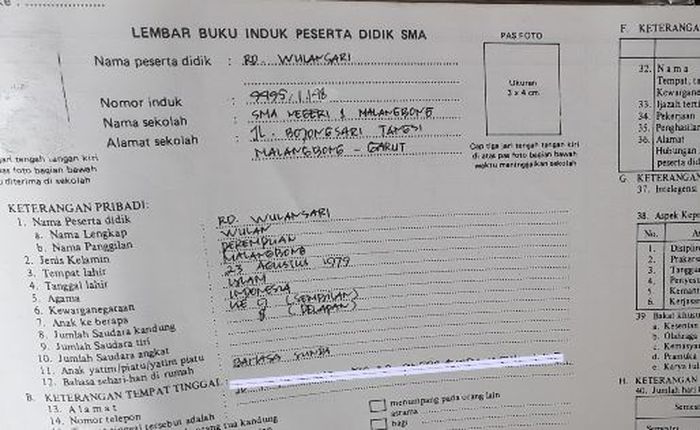 LEMBAR BUKU INDUK PESERTA DIDIK SMA
Nama peserta didik : RD. WULANSARI
Nomor induk :
Nama sekolah : SMA NEGERI 1 MALANGBONG
Alamat sekolah : JL. BOJONGSARI TANGSI
MALANGBONG - GARUT
PAS FOTO
Ukuran
3 x 4 cm
Cap tiga jari tengah tangan kiri
di atas pas foto bagian bawah
waktu meninggalkan sekolah
jari tengah tangan kiri
pas foto bagian bawah
diterima di sekolah
KETERANGAN PRIBADI:
1. Nama Peserta didik
a. Nama Lengkap : RD. WULANSARI
b. Nama Panggilan : WULAN
2. Jenis Kelamin : PEREMPUAN
3. Tempat lahir : MALANGBONG
4. Tanggal lahir : 23 AGUSTUS 1979
5. Agama : ISLAM
6. Kewarganegaraan : INDONESIA
7. Anak ke berapa : KE 9 (SEMBILAN)
8. Jumlah Saudara kandung : 8 (DELAPAN)
9. Jumlah Saudara tiri
10. Jumlah Saudara angkat
11. Anak yatim/piatu/yatim piatu
12. Bahasa sehari-hari di rumah : BAHASA SUNDA
B. KETERANGAN TEMPAT TINGGAL
13. Alamat
14. Nomor telepon
tinggal tersebut adalah
orang tua kandung
menumpang pada orang lain
asrama
bagi
F. KETERANGA
32. Nama
Tempat, ta
Kewargane
33. Ijazah tert
34. Pekerjaan
35. Penghasila
36. Alamat
Hubungan
peserta did
G. KETERANGAN
37. Intelegensi
38. Aspek Kep
No.
1. Disiplin
2. Prakars
3. Tanggu
4. Penyesu
5. Kemant
6. Kerjasa
39 Bakat khusu
a. Kesenian
b. Olahraga
c. Kemasyar
d. Pramuka
e. Karya tul
H. KETERANGAN
40. Jumlah hari
Semest
Semester